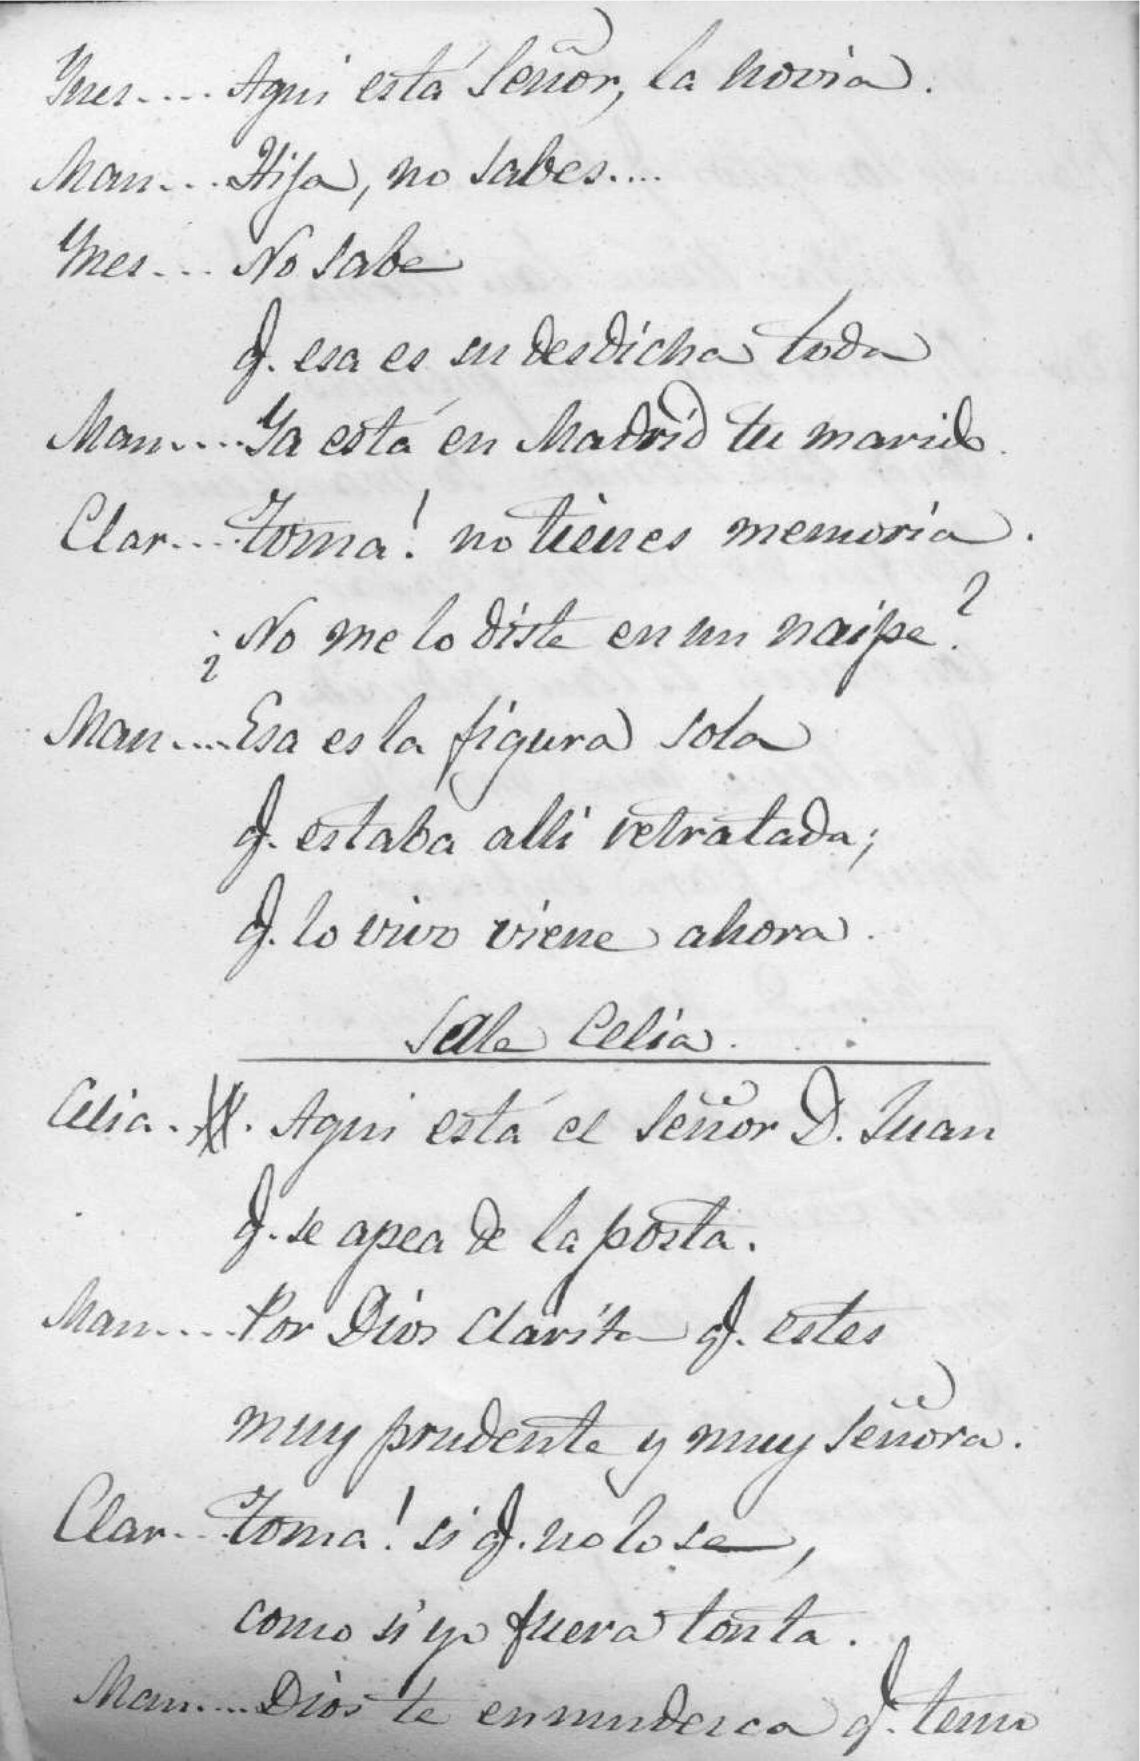 Ynes.... Aqui está Señor, la novia.
Man... Hija, no sabes....
Ynes... No sabe
q. esa es su desdicha toda
Man.... Ya está en Madrid tu marido.
Clar... toma! no tienes memoria.
¿No me lo diste en un naipe?
Man.... Esa es la figura sola
q. estaba alli retratada;
q. lo vivo viene ahora.
Sale Celia.
Celia. . Aqui está el Señor D. Juan
q. se apea de la posta.
Man.... Por Dios Clarita q. estes
muy prudente y muy señora.
Clar... toma! si q. no lo se,
como si yo fuera tonta.
Man.... Dios te enmudesca q. temo